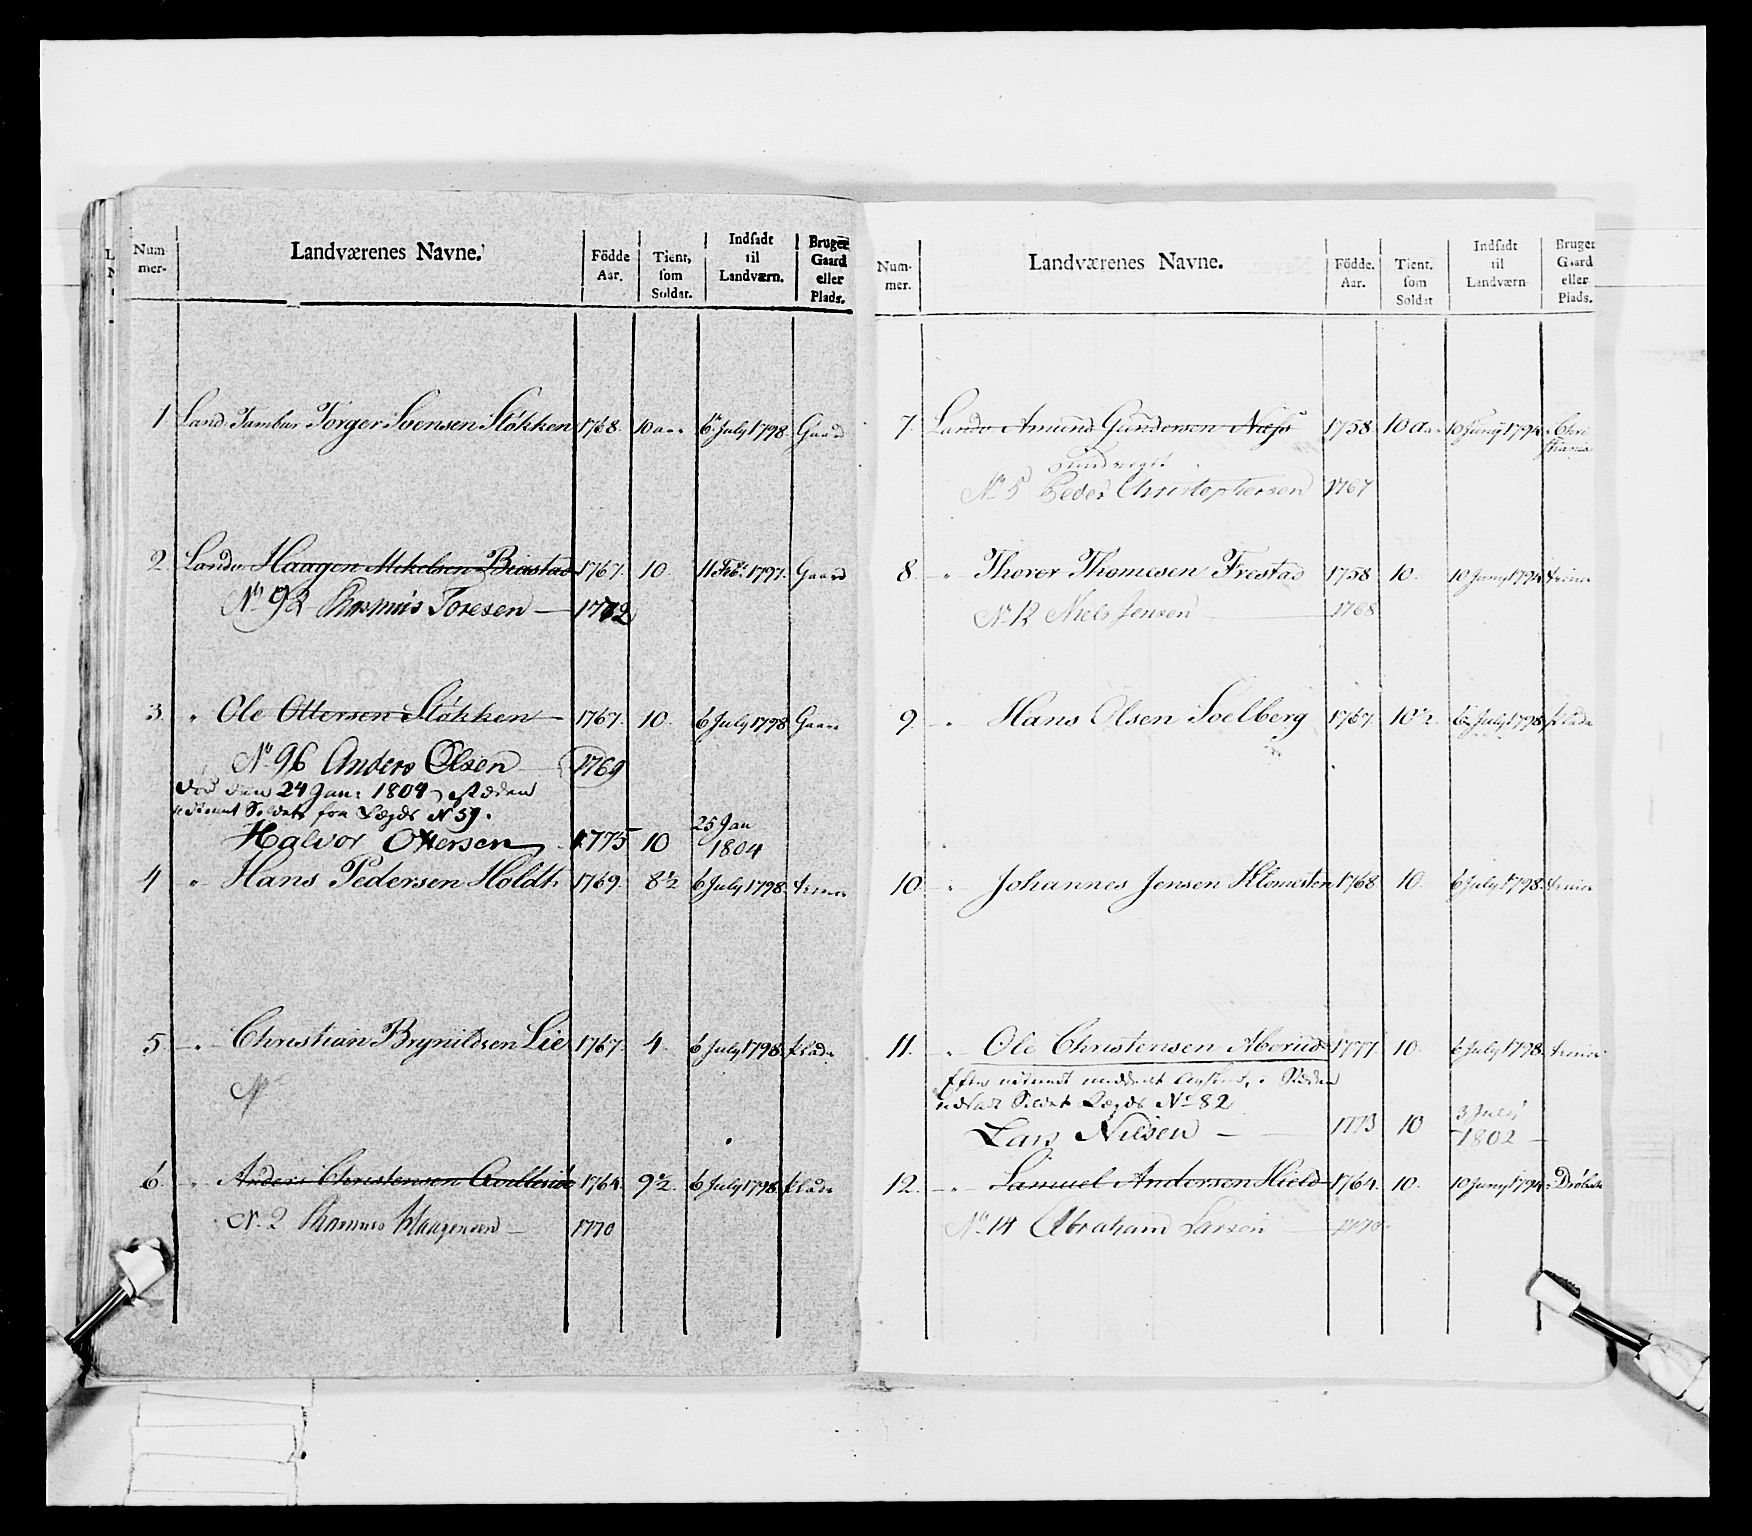 Num-
mer-
Landværenes Navne.
Födde
Aar.
Tient,
som
Soldat.
Indsadt
til
Landværn.
Bruger
Gaard
eller
Plads.
1 Land: Tambur Torger Svensen Stökken 1768. 10 6 July 1798. Gaard
2. Landv: Haagen Mekelsen 1767. 10. 11 Febr: 1797. Gaard
No 92 Rasmus Toresen — 1772
3 " Ole Ottersen Stökken 1767. 10. 6 July 1798 Gaard
No 96 Anders Olsen 1769
död den 24 Jan: 1804
Soldat fra Lægds No 59.
Halvor Ottersen 1775 10 25 Jan 1804
4 " Hans Pedersen Holdt 1769. 8½ 6 July 1798.
5. " Christian Brynildsen Lie 1767. 4. 6 July 1798. Plads
No
6. " Anders Christensen 1764. 9½. 6 July 1798. Plads
No 2 Haagensen — 1770
Num-
mer.
Landværenes Navne.
Födde.
Aar.
Tient.
som
Soldat
Indsadt
til
Landværn
Bruger
Gaard
eller
Plads.
7. Landv Amund Gundersen Næss 1758 10 10 Juny 1794 Christiania
No 5 Peder Christophersen 1767
8 " Thorer Thomesen Frestad 1758 10. 10 Juny 1794
No 12 Niels Jensen 1768
9. " Hans Olsen Soelberg 1767. 10½. 6 July 1798 Plads
10 " Johannes Jensen Klomesten 1768 10. 6 July 1798.
11. " Ole Christensen Aberud 1777. 10. 6 July 1798.
Soldat Lægds No 82
Lars Nilsen — 1773 10 3 July 1802 —
12. " Samuel Andersen Hield 1764. 10. 10 Juny 1794 Dröbak
No 14 Abraham Larsen 1770